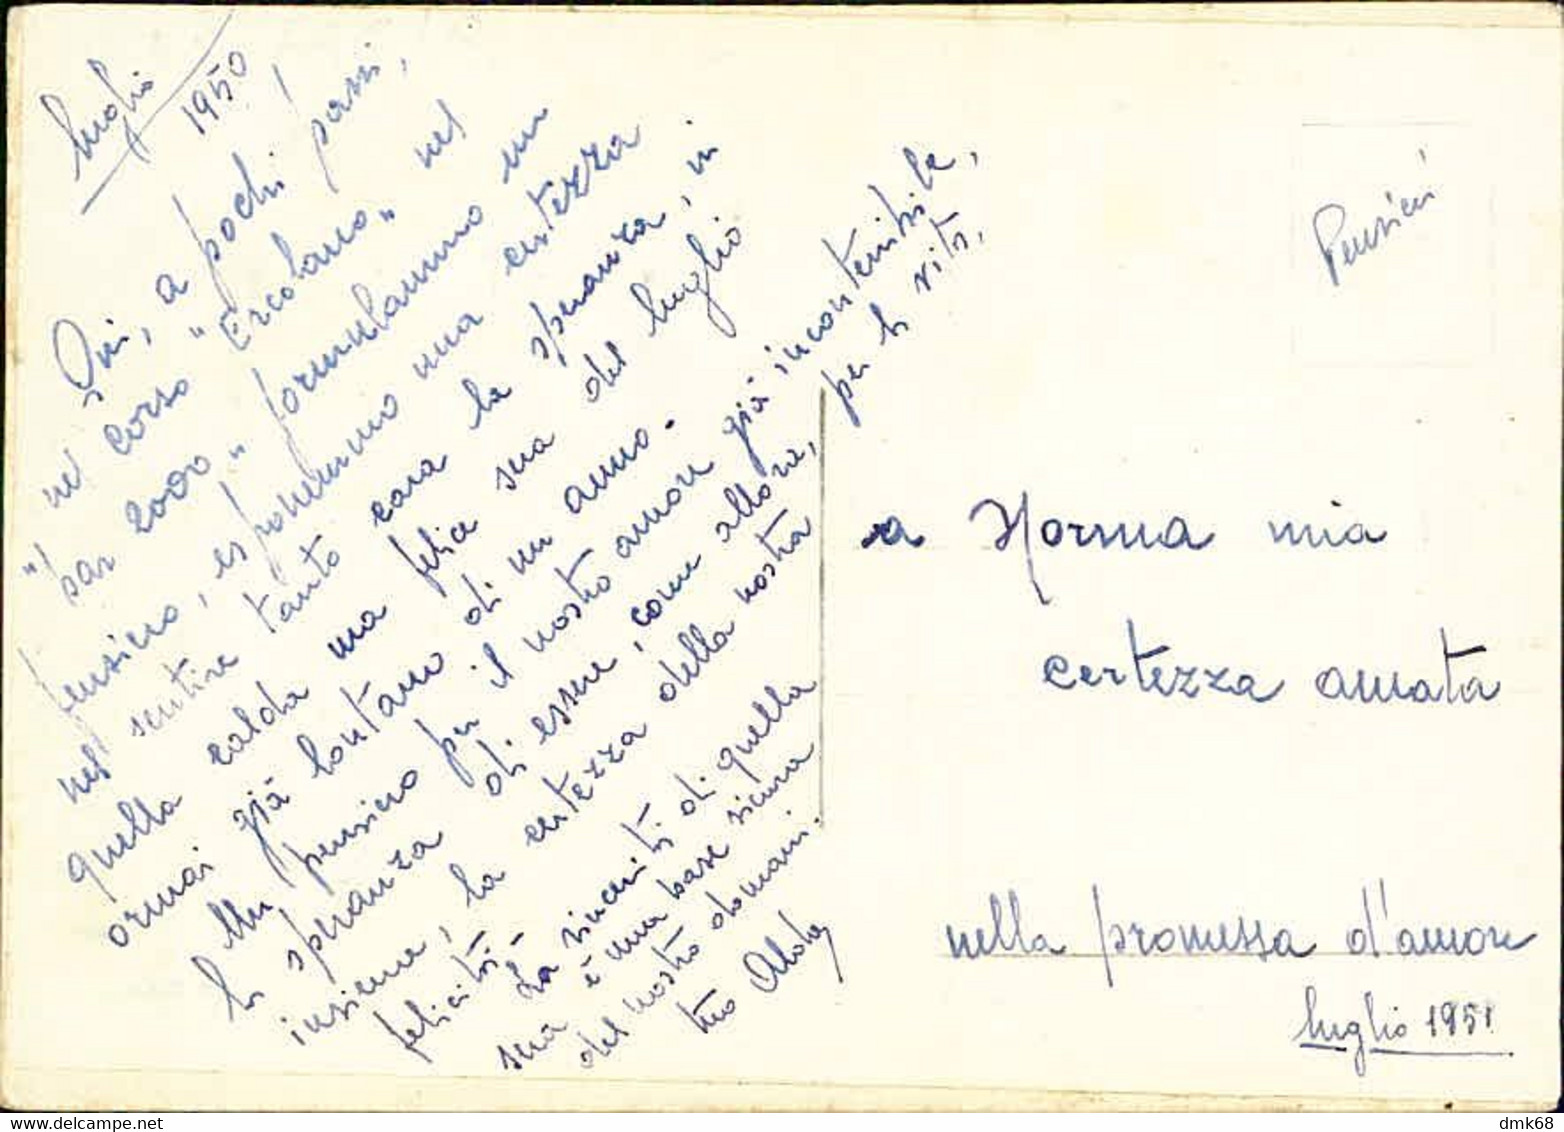 luglio 1950
Qui, a pochi passi,
nel corso "Ercolano" nel
"bar 2000" formulammo un
pensiero, esponemmo una certezza
nel sentire tanto cara la speranza, in
quella calda ma felice sera del luglio
ormai già lontano di un anno.
Un pensiero per il nostro amore già incontenibile,
la speranza di essere, come allora, per la vita,
insieme, la certezza della nostra
felicità.
La sincerità di quella
sera è una base sicura
del nostro domani.
tuo Aldo
Pensieri
a Norma mia
certezza amata
nella promessa d'amore
luglio 1951
dmk68